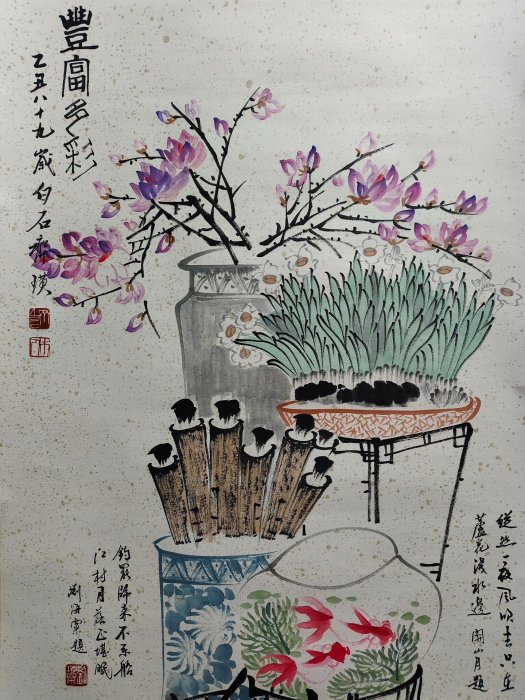 豐富多彩
乙丑八十九歲白石齊璜
釣罷歸来不系船
江村月落正堪眠
劉海粟題
縱然一夜風吹去只在
蘆花淺水邊 関山月題